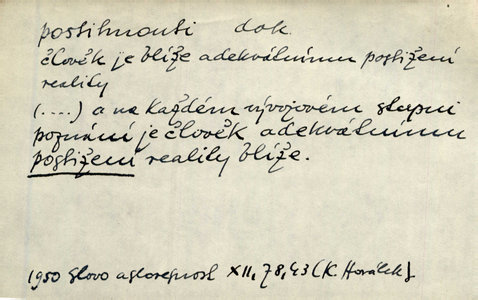 postihnouti dok.
člověk je blíže adekvátnímu postižení
reality
(....) a na každém vývojovém stupni
poznání je člověk adekvátnímu
postižení reality blíže.
1950 Slovo a slovesnost XII, 78, 43 (K. Horálek).